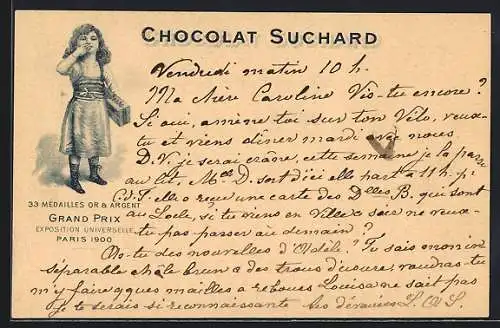 CHOCOLAT SUCHARD
Vendredi matin 10 h.
Ma chère Caroline Vis-tu encore ?
Si oui, amène toi sur ton Vélo, veux-
tu et viens dîner mardi avec nous
D.V. je serai crâne, cette semaine je la passe
au lit, Mlle D. sort d'ici elle part à 11 h. p.
elle a reçue une carte des Dlles B. qui sont
au Locle, si tu viens en Ville ce soir ne veux-
tu pas passer ou demain ?
As-tu des nouvelles d'Adèle ? Tu sais mon in
séparable châle brun a des trous d'usures, voudras-tu
m'y faire qques mailles à rebours Louisa ne sait pas
je te serais si reconnaissante
33 MÉDAILLES OR & ARGENT
GRAND PRIX
EXPOSITION UNIVERSELLE
PARIS 1900